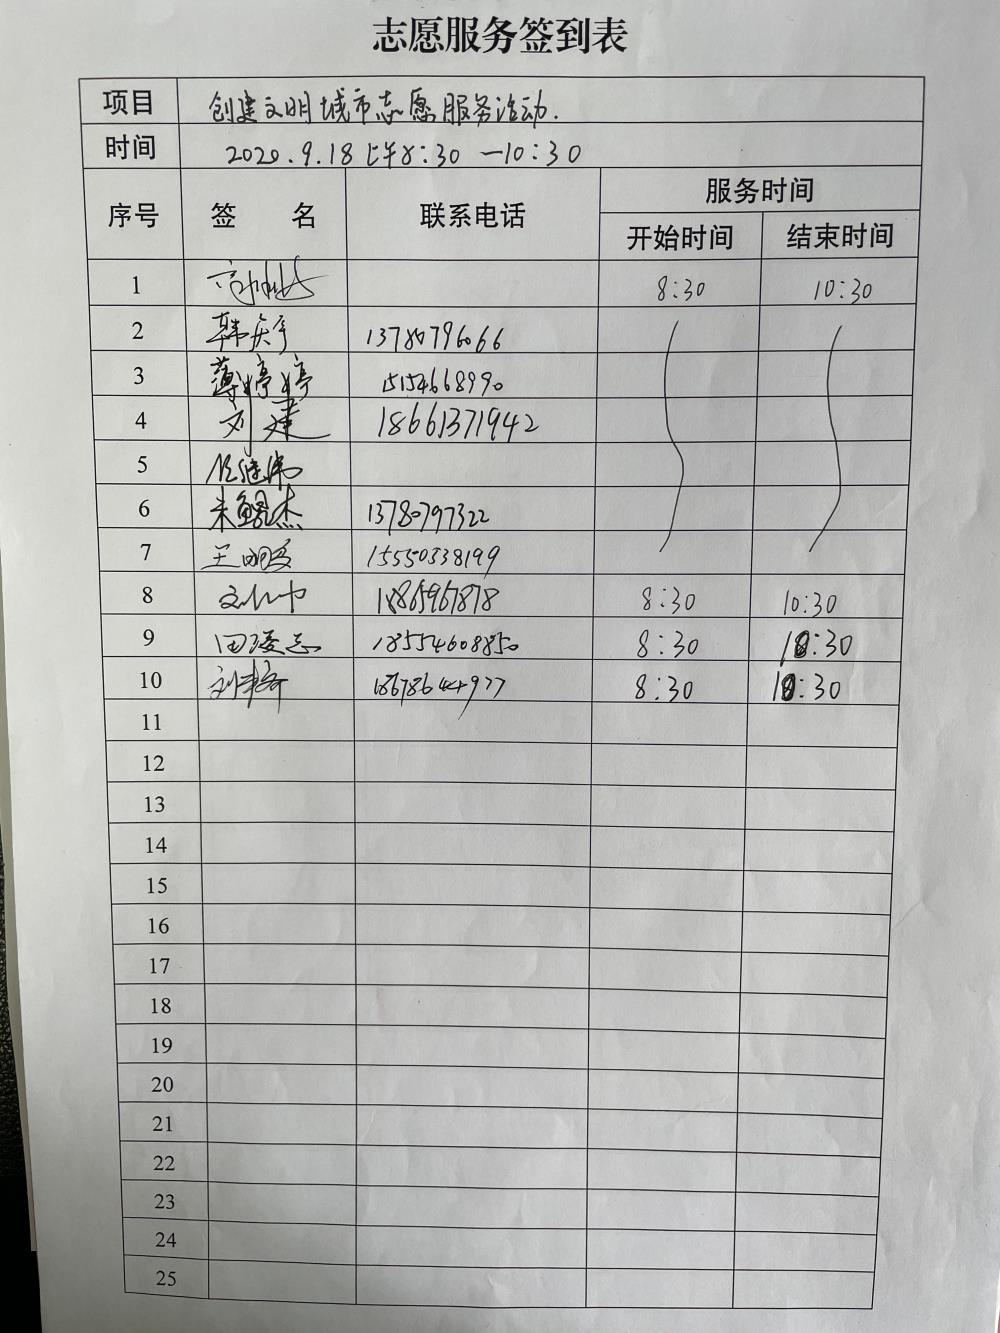 志愿服务签到表
项目 创建文明城市志愿服务活动.
时间 2020.9.18 上午8:30 —10:30
序号 签 名 联系电话 服务时间
开始时间 结束时间
1 8:30 10:30
2 韩庆宇 13780796066
3 薄婷婷 15154668990
4 刘建 18661371942
5
6 朱鲲杰 13780797322
7 王 15550538199
8 8:30 10:30
9 田凌志 18554608850 8:30 10:30
10 刘 8:30 10:30
11
12
13
14
15
16
17
18
19
20
21
22
23
24
25